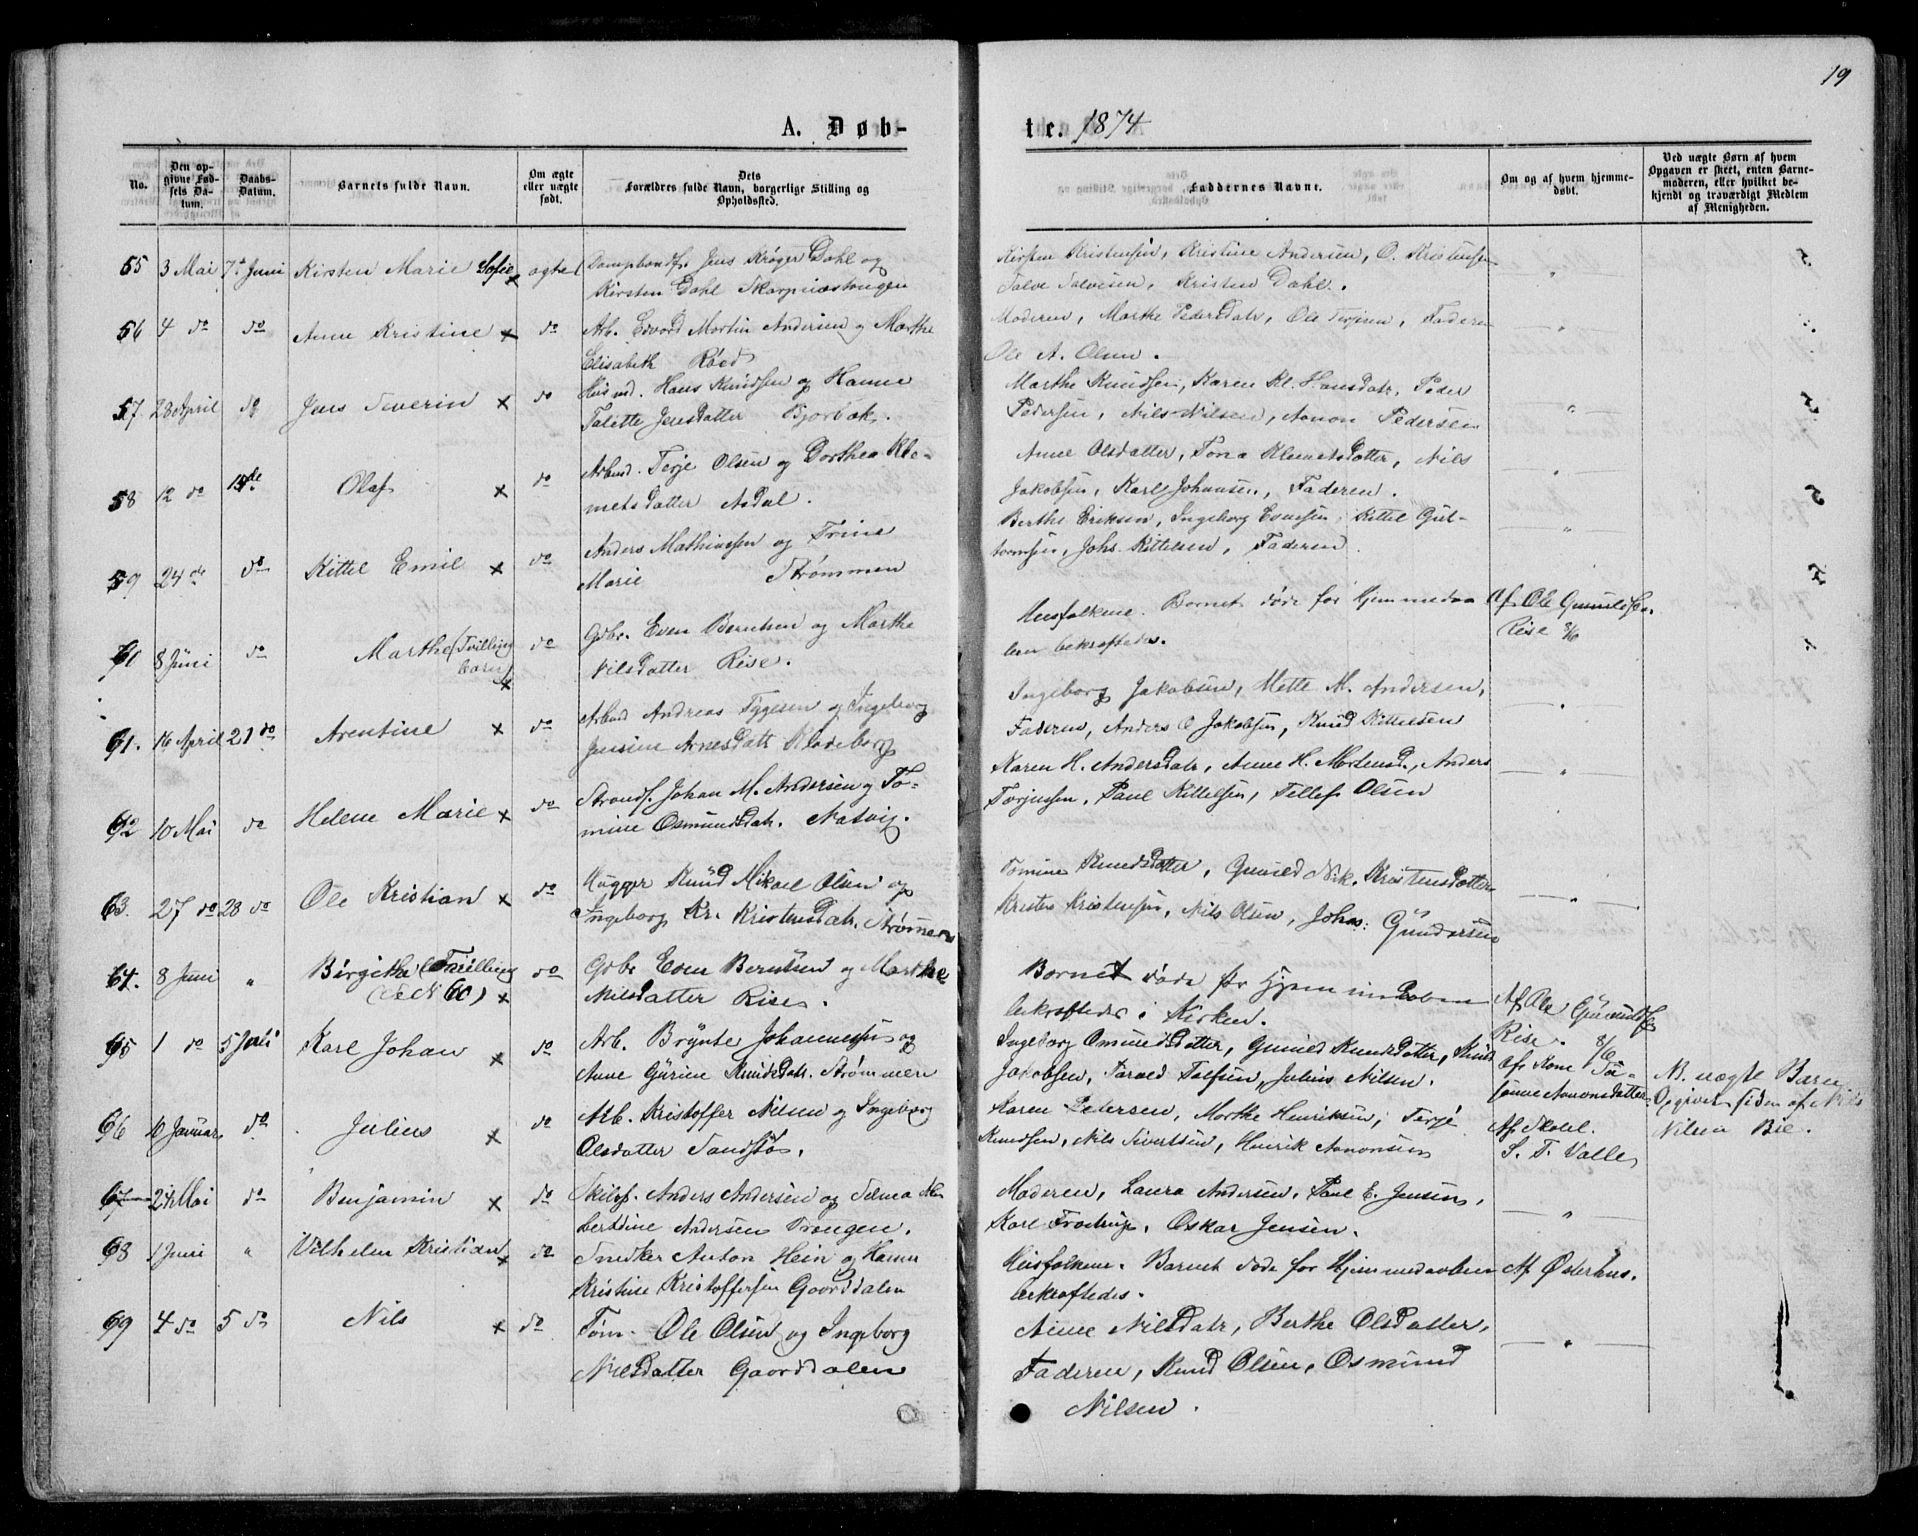 19
A. Døb-
te. 1874
No.
Den op-
givne Fød-
sels Da-
tum.
Daabs-
Datum.
Barnets fulde Navn.
Om ægte
eller uægte
født.
Dets
Forældres fulde Navn, borgerlige Stilling og
Opholdssted.
Faddernes Navne.
Om og af hvem hjemme-
døbt.
Ved uægte Børn af hvem
Opgaven er skeet, enten Barne-
moderen, eller hvilket be-
kjendt og troværdigt Medlem
af Menigheden.
55 3 Mai 7de Juni Kirsten Marie Sofie x ægte Jens Krøger Dahl og
Kirsten Dahl
Kirsten Kristensen, Kristine Andersen, O. Kristensen
Talve Talvesen, Kristen Dahl.
56 4 do do Anne Kristine x do Arb. Edvard Martin Andersen og Marthe
Elisabeth Røed
Moderen, Marthe Pedersdatr, Ole Terjesen, Faderen
Ole A. Olsen.
57 28 April do Jens Severin x do Husmd. Hans Knudsen og Hanne
Talette Jensdatter Bjorbæk.
Marthe Knudsen, Karen Kl. Hansdatr, Peder
Pedersen, Nils Nilsen, Aanon Pedersen
58 12 do 14de Olaf x do Arbmd. Terje Olsen og Dorthea Kle-
metsdatter Asdal.
Anne Olsdatter, Tona Klemetsdatter, Nils
Jakobsen, Karl Johansen, Faderen.
59 24 do do Kittel Emil x do Anders Mathiassen og Trine
Marie Strømmen
Berthe Eriksen, Ingeborg Evensen, Kittel Gut-
tormsen, Johs. Kittelsen, Faderen.
60 8 Juni do Marthe (Tvilling
barn) x do Gdbr. Even Berntsen og Marthe
Nilsdatter Rise.
Husfolkene. Barnet døde før Hjemmedaa-
ben bekræftedes.
Af Ole Gunnulfsen
Rise 8/6
61. 16 April 21 do Arentine x do Arbmd Andreas Tygesen og Ingeborg
Jensine Arnesdatr Klodeborg
Ingeborg Jakobsen, Mette M. Andersen,
Faderen, Anders O Jakobsen, Knud Kittelsen
62 10 Mai do Helene Marie x do Strands. Johan M. Andersen og To-
mine Osmundsdatr. Natvig.
Karen H. Andersdatr, Anne H. Mortensd., Anders
Torjussen, Paul Kittelsen, Tellef Olsen
63. 27 do 28 do Ole Kristian x do Hugger Knud Mikael Olsen og
Ingeborg Kr. Kristensdatr. Strømmen
Tomine Knudsdatter, Gunild Nik. Kristensdatter
Kristen Kristensen, Nils Olsen, Johs: Gundersen
64. 8 Juni " Birgithe (Tvilling
(se N 60) x do Gdbr Even Berntsen og Marthe
Nilsdatter Rise.
Barnet døde før Hjemmedaaben
bekræftedes i Kirken.
Af Ole Gunnulfsen
Rise. 8/6
65 1 do 5 Juli Karl Johan x do Arb. Brynte Johannessen og
Anne Gurine Knudsdatr. Strømmen
Ingeborg Omundsdatter, Gunild Knudsdatter, Knud
Jakobsen, Tarald Talfsen, Julius Nilsen.
Af Kone
Aanonsdatter.
66 10 Januar do Julius x do Arb. Kristoffer Nilsen og Ingeborg
Olsdatter Sandstø.
Karen Pedersen, Marthe Henriksen, Terje
Knudsen, Nils Sivertsen, Henrik Aanonsen
Af Skolel.
S. T. Valle
N. uægte Barn.
Opgivet siden af Nils
Nilsen Bie.
67 24 Mai do Benjamin x do Skibsf. Anders Andersen og Selma Al-
bertine Andersen Trongen.
Moderen, Laura Andersen, Paul E. Jensen,
Karl Frostrup, Oskar Jensen.
68 1 Juni " Vilhelm Kristian x do Snedker Anton Hein og Hanne
Kristine Kristoffersen Gaarddalen
Husfolkene. Barnet døde før Hjemmedaaben
bekræftedes.
Af Østerhus.
69 4 do 5 do Nils x do Tøm. Ole Olsen og Ingeborg
Nilsdatter Gaarddalen
Anne Nilsdatr, Berthe Olsdatter,
Faderen, Knud Olsen, Osmund
Nilsen.